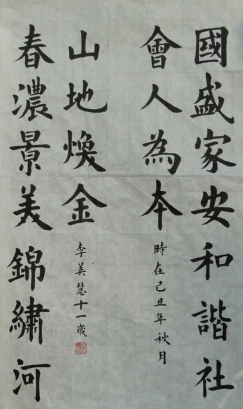 國盛家安和諧社
會人為本
時在己丑年秋月
春濃景美錦繡河
山地煥金
李美慧十一歲